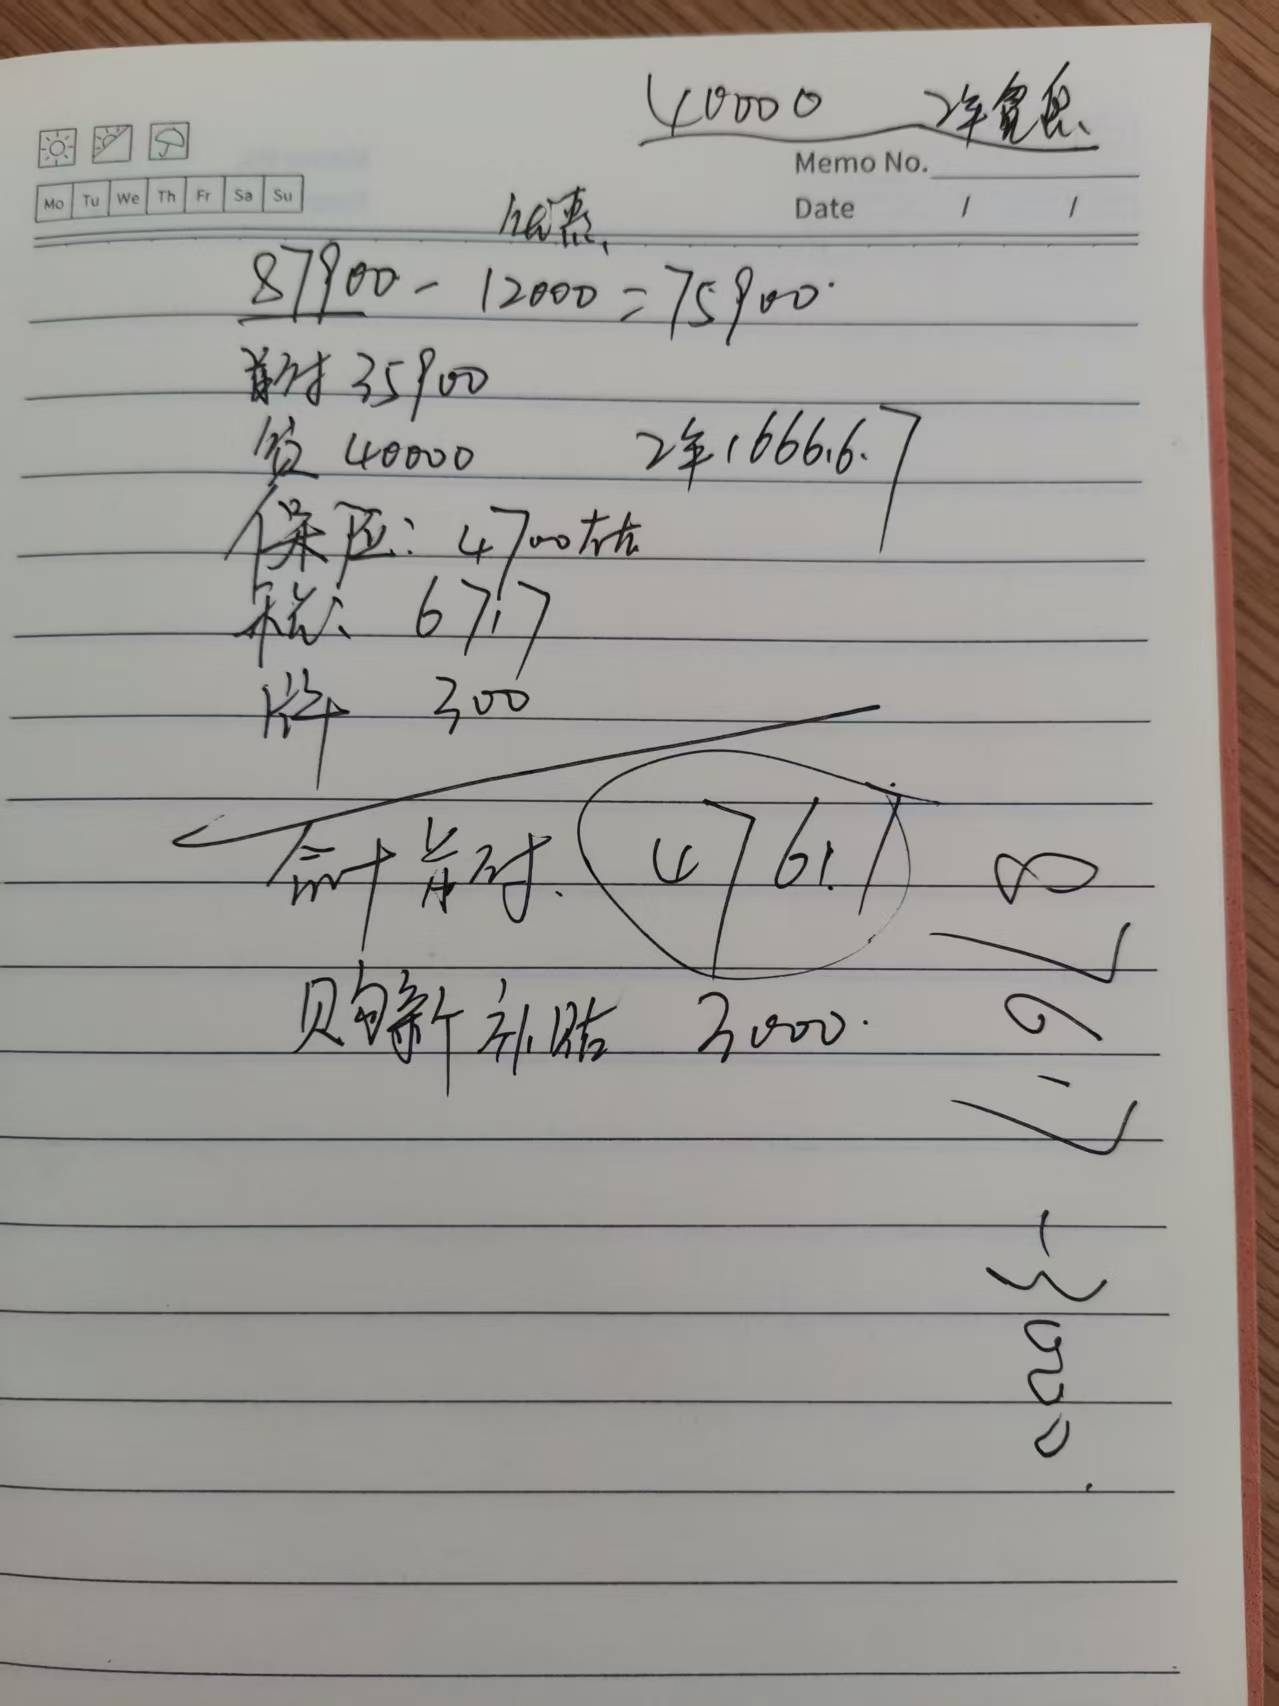 40000 2年免息
Memo No.
Mo Tu We Th Fr Sa Su
Date / /
优惠
87900 - 12000 = 75900
首付 35900
贷 40000 2年 1666.67
保险: 4700左右
税: 6717
牌 300
合计首付. 47617
购新补贴 3000.
87617
-3000.